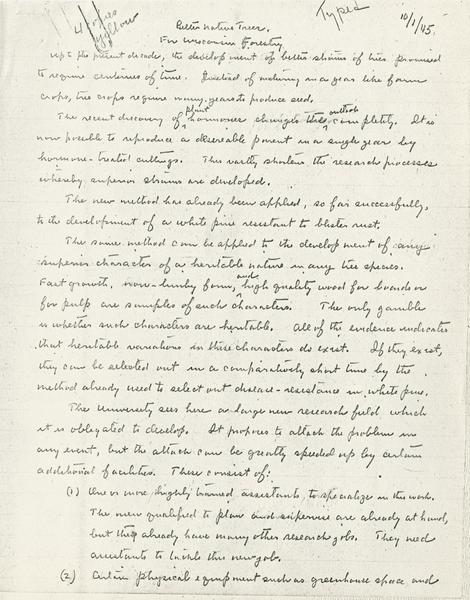 4 copies
yellow
Typed
10/1/45.
Better Native Trees
For Wisconsin Forestry
Up to the present decade, the development of better strains of trees promised
to require centuries of time. Instead of maturing in a year like farm
crops, tree crops require many years to produce seed.
The recent discovery of plant hormones changes this outlook completely. It is
now possible to reproduce a desirable parent in a single year by
hormone-treated cuttings. This vastly shortens the research processes
whereby superior strains are developed.
The new method has already been applied, so far successfully,
to the development of a white pine resistant to blister rust.
The same method can be applied to the development of any
superior character of a heritable nature in any tree species.
Fast growth, non-limby form, and high quality wood for boards or
for pulp are samples of such characters. The only gamble
is whether such characters are heritable. All of the evidence indicates
that heritable variations in these characters do exist. If they exist,
they can be selected out in a comparatively short time by the
method already used to select out disease-resistance in white pine.
The University sees here a large new research field which
it is obligated to develop. It proposes to attack the problem in
any event, but the attack can be greatly speeded up by certain
additional facilities. These consist of:
(1) One or more highly trained assistants, to specialize in this work.
The men qualified to plan and supervise are already at hand,
but they already have many other research jobs. They need
assistants to tackle this new job.
(2) Certain physical equipment such as greenhouse space and